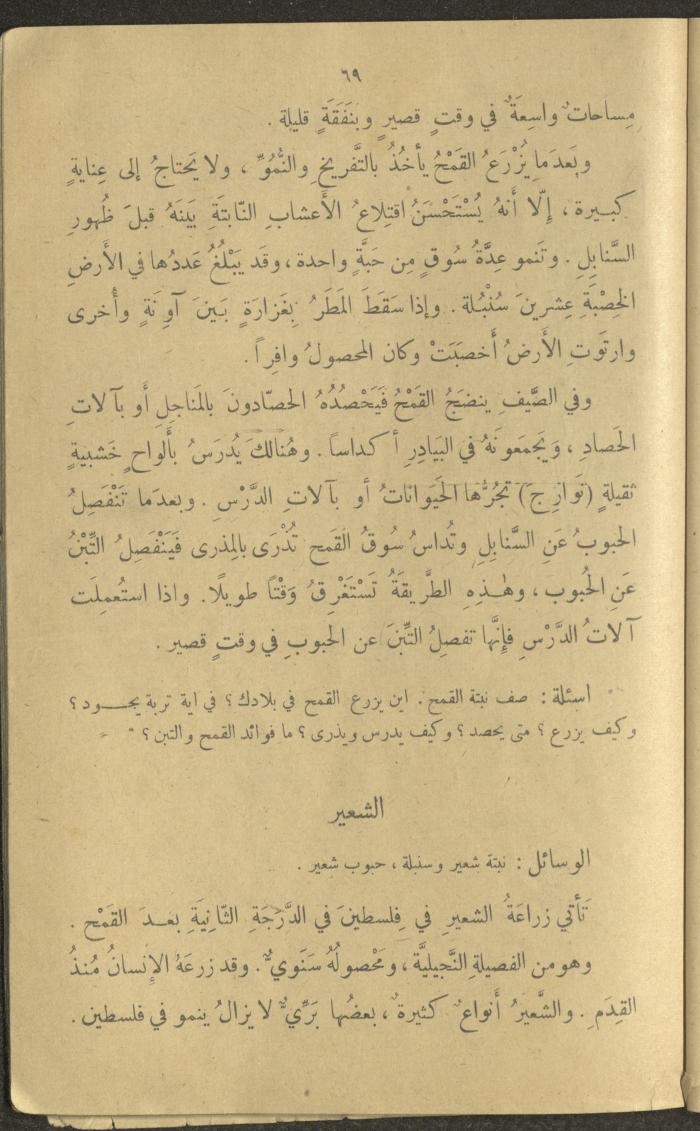 ٦٩
مِساحاتٌ واسِعَةٌ في وقتٍ قصيرٍ وبنَفَقَةٍ قليلة .
وبَعدَمَا يُزْرَعُ القَمْحُ يأخُذُ بالتَّفريخِ والنُّمُوِّ ، ولا يَحتاجُ إلى عِنايةٍ
كبيرة ، إلّا أنهُ يُسْتَحْسَنُ اقتِلاعُ الأَعشابِ النّابتَةِ بَينَهُ قبلَ ظُهورِ
السَّنابِلِ . وتَنمو عِدَّةُ سُوقٍ مِن حَبَّةٍ واحدة ، وقَد يَبْلُغُ عَددُها في الأَرضِ
الخِصْبَةِ عِشرينَ سُنْبُلة . وإذا سَقَطَ المَطَرُ بِغَزارَةٍ بَينَ آوِنَةٍ وأُخرى
وارتَوَتِ الأَرضُ أَخصَبَتْ وكان المحصولُ وافِراً .
وفي الصَّيفِ ينضَجُ القَمْحُ فَيَحْصُدُهُ الحصّادونَ بالمَناجلِ أو بآلاتِ
الحَصادِ ، وَيَجمَعونَهُ في البَيادِرِ أكداساً . وهُنالكَ يُدرَسُ بأَلواحٍ خَشبيةٍ
ثقيلةٍ (نَوارِجَ) تَجُرُّها الحَيَواناتُ أو بآلاتِ الدَّرْسِ . وبعدَمَا تَنْفَصِلُ
الحبوبُ عَنِ السَّنابلِ وتُداسُ سُوقُ القَمحِ تُذْرَى بالمِذرى فَيَنْفَصِلُ التِّبْنُ
عَنِ الحُبوبِ ، وهٰذِهِ الطَّريقَةُ تَسْتَغْرِقُ وَقْتاً طويلًا. واذا استُعمِلَت
آلاتُ الدَّرْسِ فإِنَّها تفصِلُ التِّبنَ عنِ الحبوبِ في وقتٍ قصير .
اسئلة : صف نبتة القمح . اين يزرع القمح في بلادك ؟ في اية تربة يجود ؟
وكيف يزرع ؟ متى يحصد ؟ وكيف يدرس ويذرى ؟ ما فوائد القمح والتبن ؟
الشعير
الوسائل : نبتة شعير وسنبلة ، حبوب شعير .
تَأتي زراعَةُ الشعيرِ في فِلسطينَ في الدَّرَجَةِ الثّانِيَةِ بعدَ القَمْح .
وهو من الفصيلةِ النَّجيليَّة ، ومَحْصولُهُ سَنَويٌّ . وقد زرعَهُ الإِنسانُ مُنذُ
القِدَمِ . والشَّعيرُ أَنواعٌ كثيرةٌ ، بعضُها بَرِّيٌّ لا يزالُ ينمو في فلسطين .